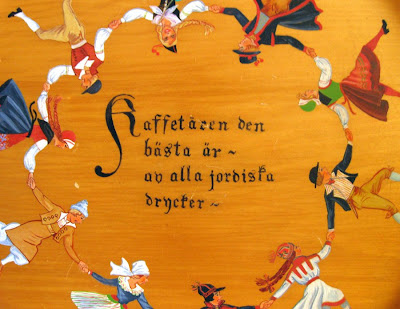 Kaffetåren den
bästa är ~
av alla jordiska
drycker ~